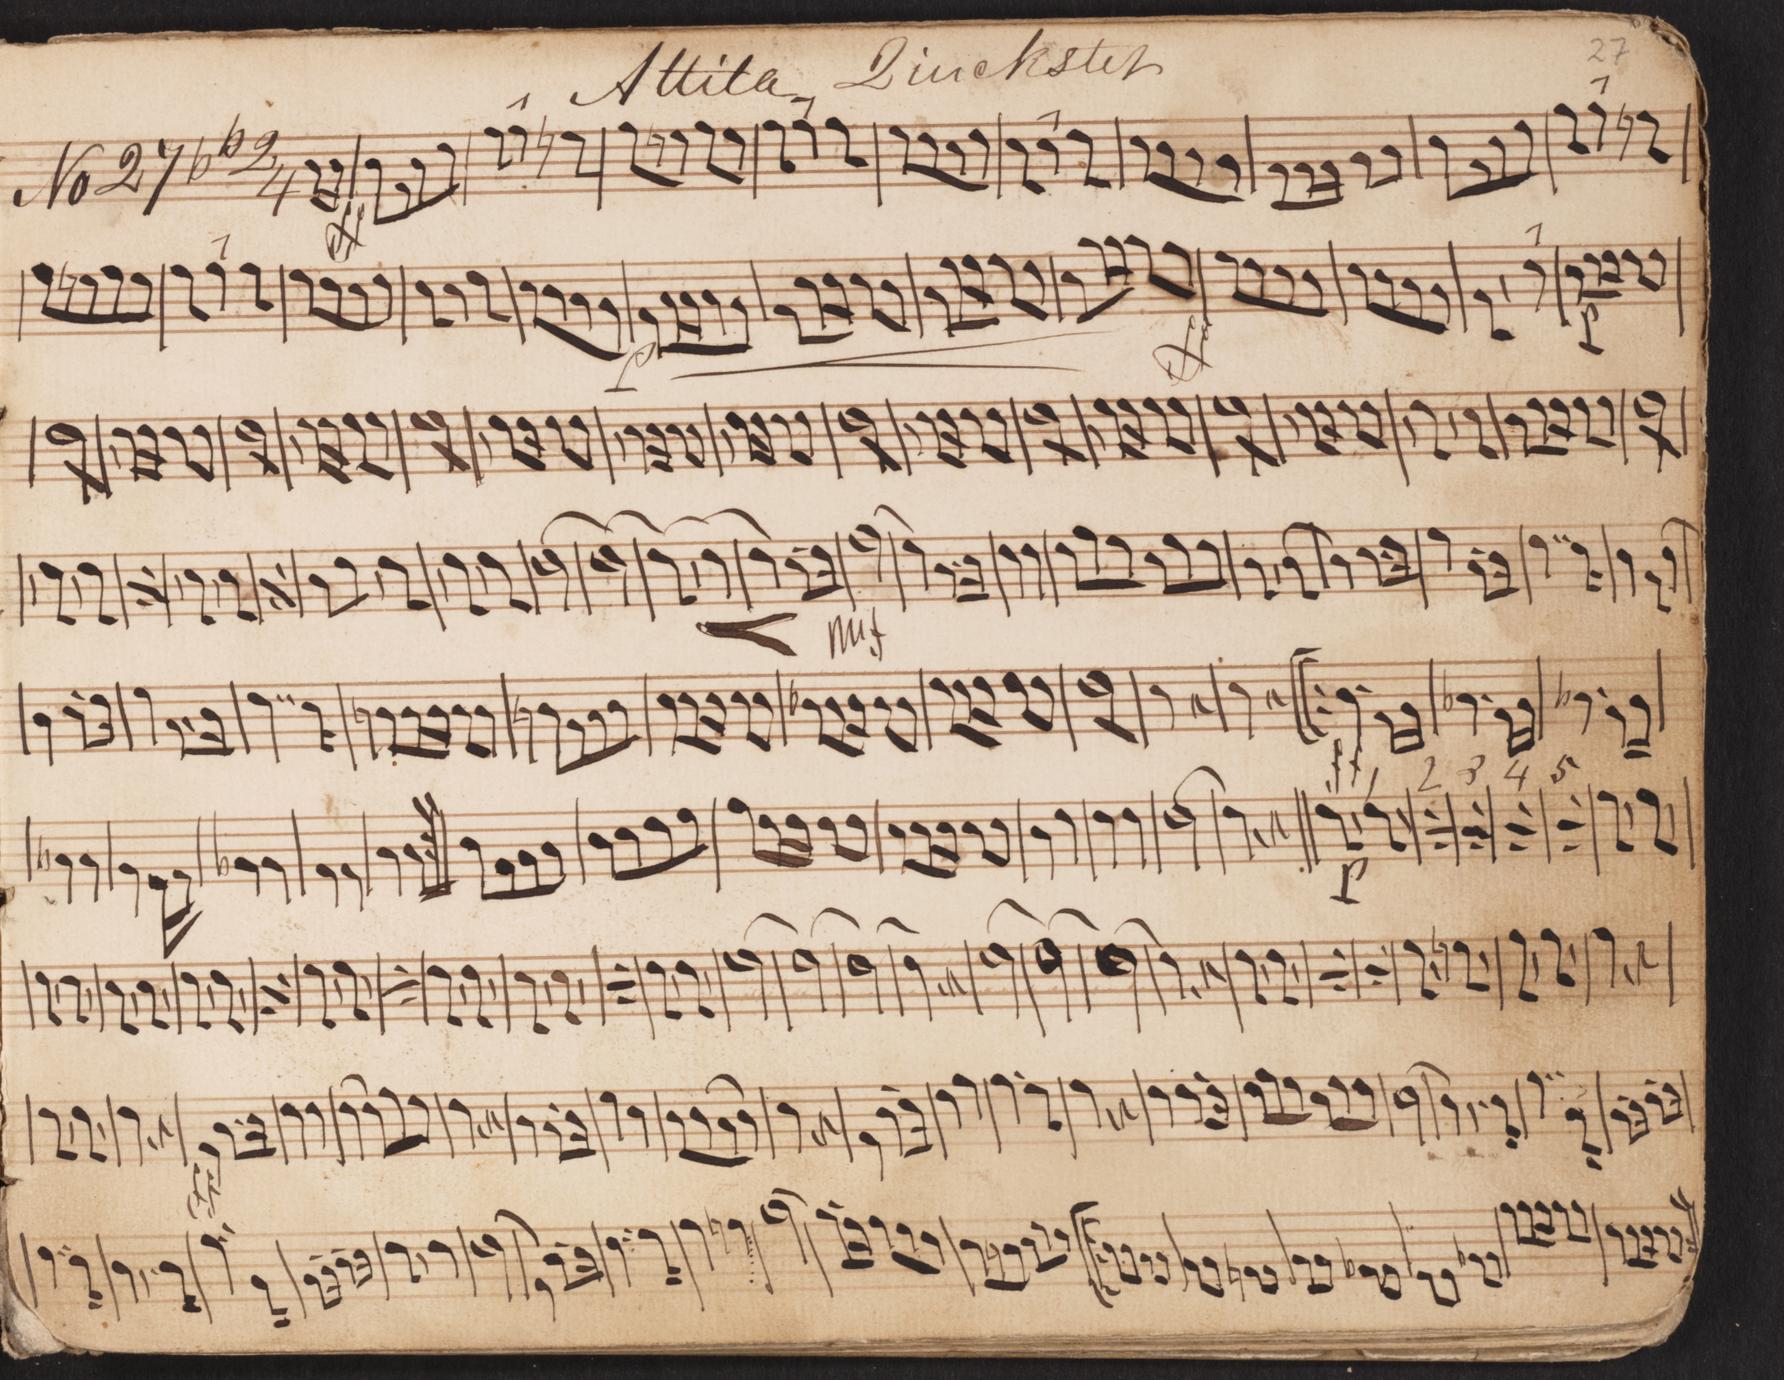 27
Attila Quickstep
No 27 2/4
ff
p
ff
p
mf
ff 1 2 3 4 5
p
ff